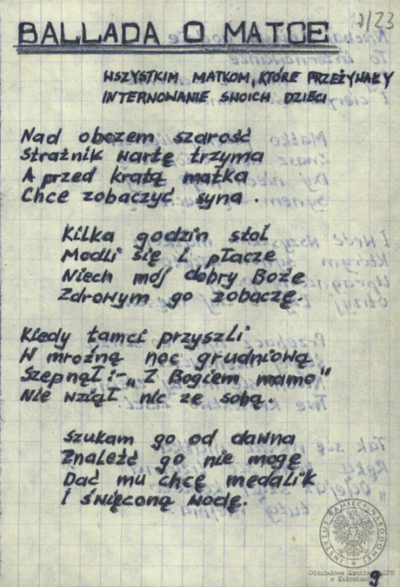 17/23
BALLADA O MATCE
WSZYSTKIM MATKOM, KTÓRE PRZEŻYWAŁY
INTERNOWANIE SWOICH DZIECI
Nad obozem szarość
Strażnik wartę trzyma
A przed kratą matka
Chce zobaczyć syna.
Kilka godzin stoi
Modli się i płacze
Niech mój dobry Boże
Zdrowym go zobaczę.
Kiedy tamci przyszli
W mroźną noc grudniową
Szepnął :- „Z Bogiem mamo"
Nie wziął nic ze sobą.
Szukam go od dawna
Znaleźć go nie mogę
Dać mu chcę medalik
I święconą wodę.
INSTYTUT PAMIĘCI NARODOWEJ
Oddziałowe Archiwum IPN
w Katowicach
9